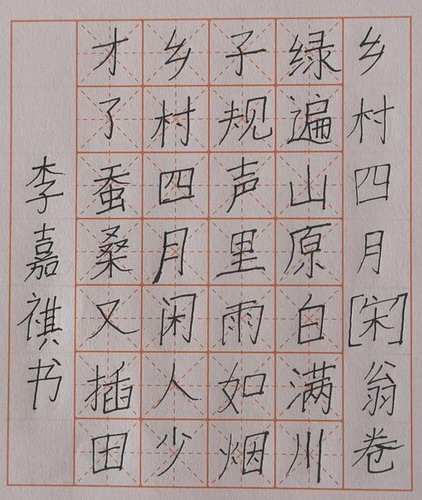 乡村四月[宋]翁卷
绿遍山原白满川
子规声里雨如烟
乡村四月闲人少
才了蚕桑又插田
李嘉祺书